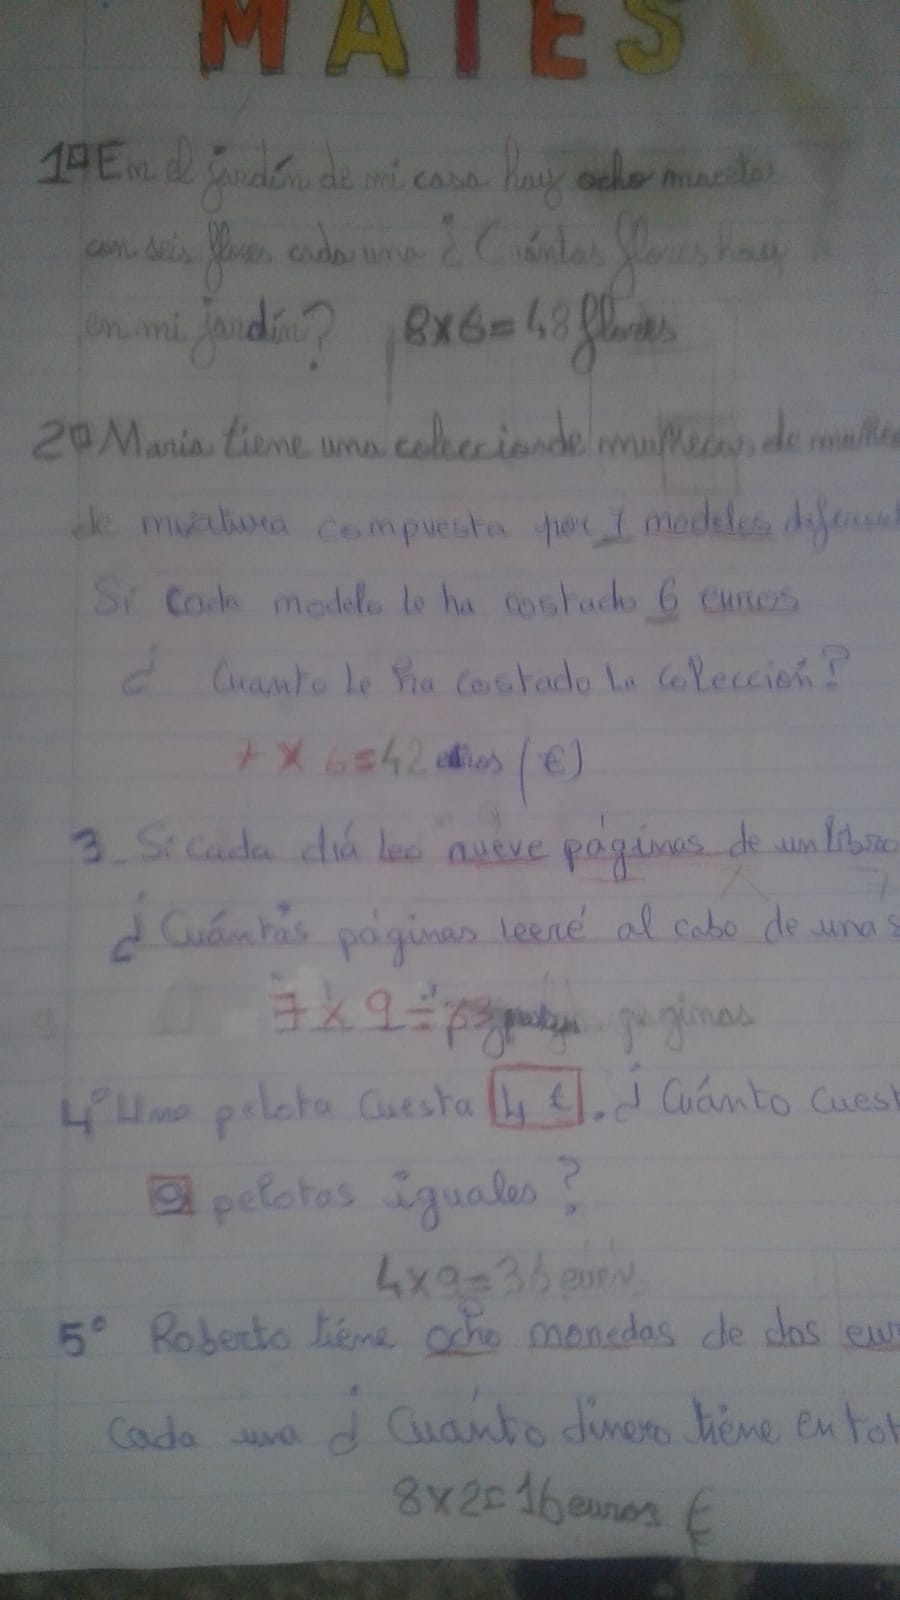 MATES
1º En el jardín de mi casa hay ocho macetas
con seis flores cada una ¿ Cuántas flores hay
en mi jardín? 8x6=48 flores
2º Maria tiene una coleccion de muñecas de
de compuesta por 7 modeles
Si cada modelo le ha costado 6 euros
¿ Cuanto le ha costado la colección?
7 x 6=42 (€)
3 Si cada diá leo nueve páginas de un libro
7
¿ Cuántas páginas leeré al cabo de una s
7 x 9 = 63 paginas
4º Una pelota cuesta 4 €. ¿ Cuánto cuest
9 pelotas iguales?
4x9=36
5º Roberto tiene ocho monedas de dos eur
cada una ¿ Cuánto dinero tiene en tot
8x2=16 euros €